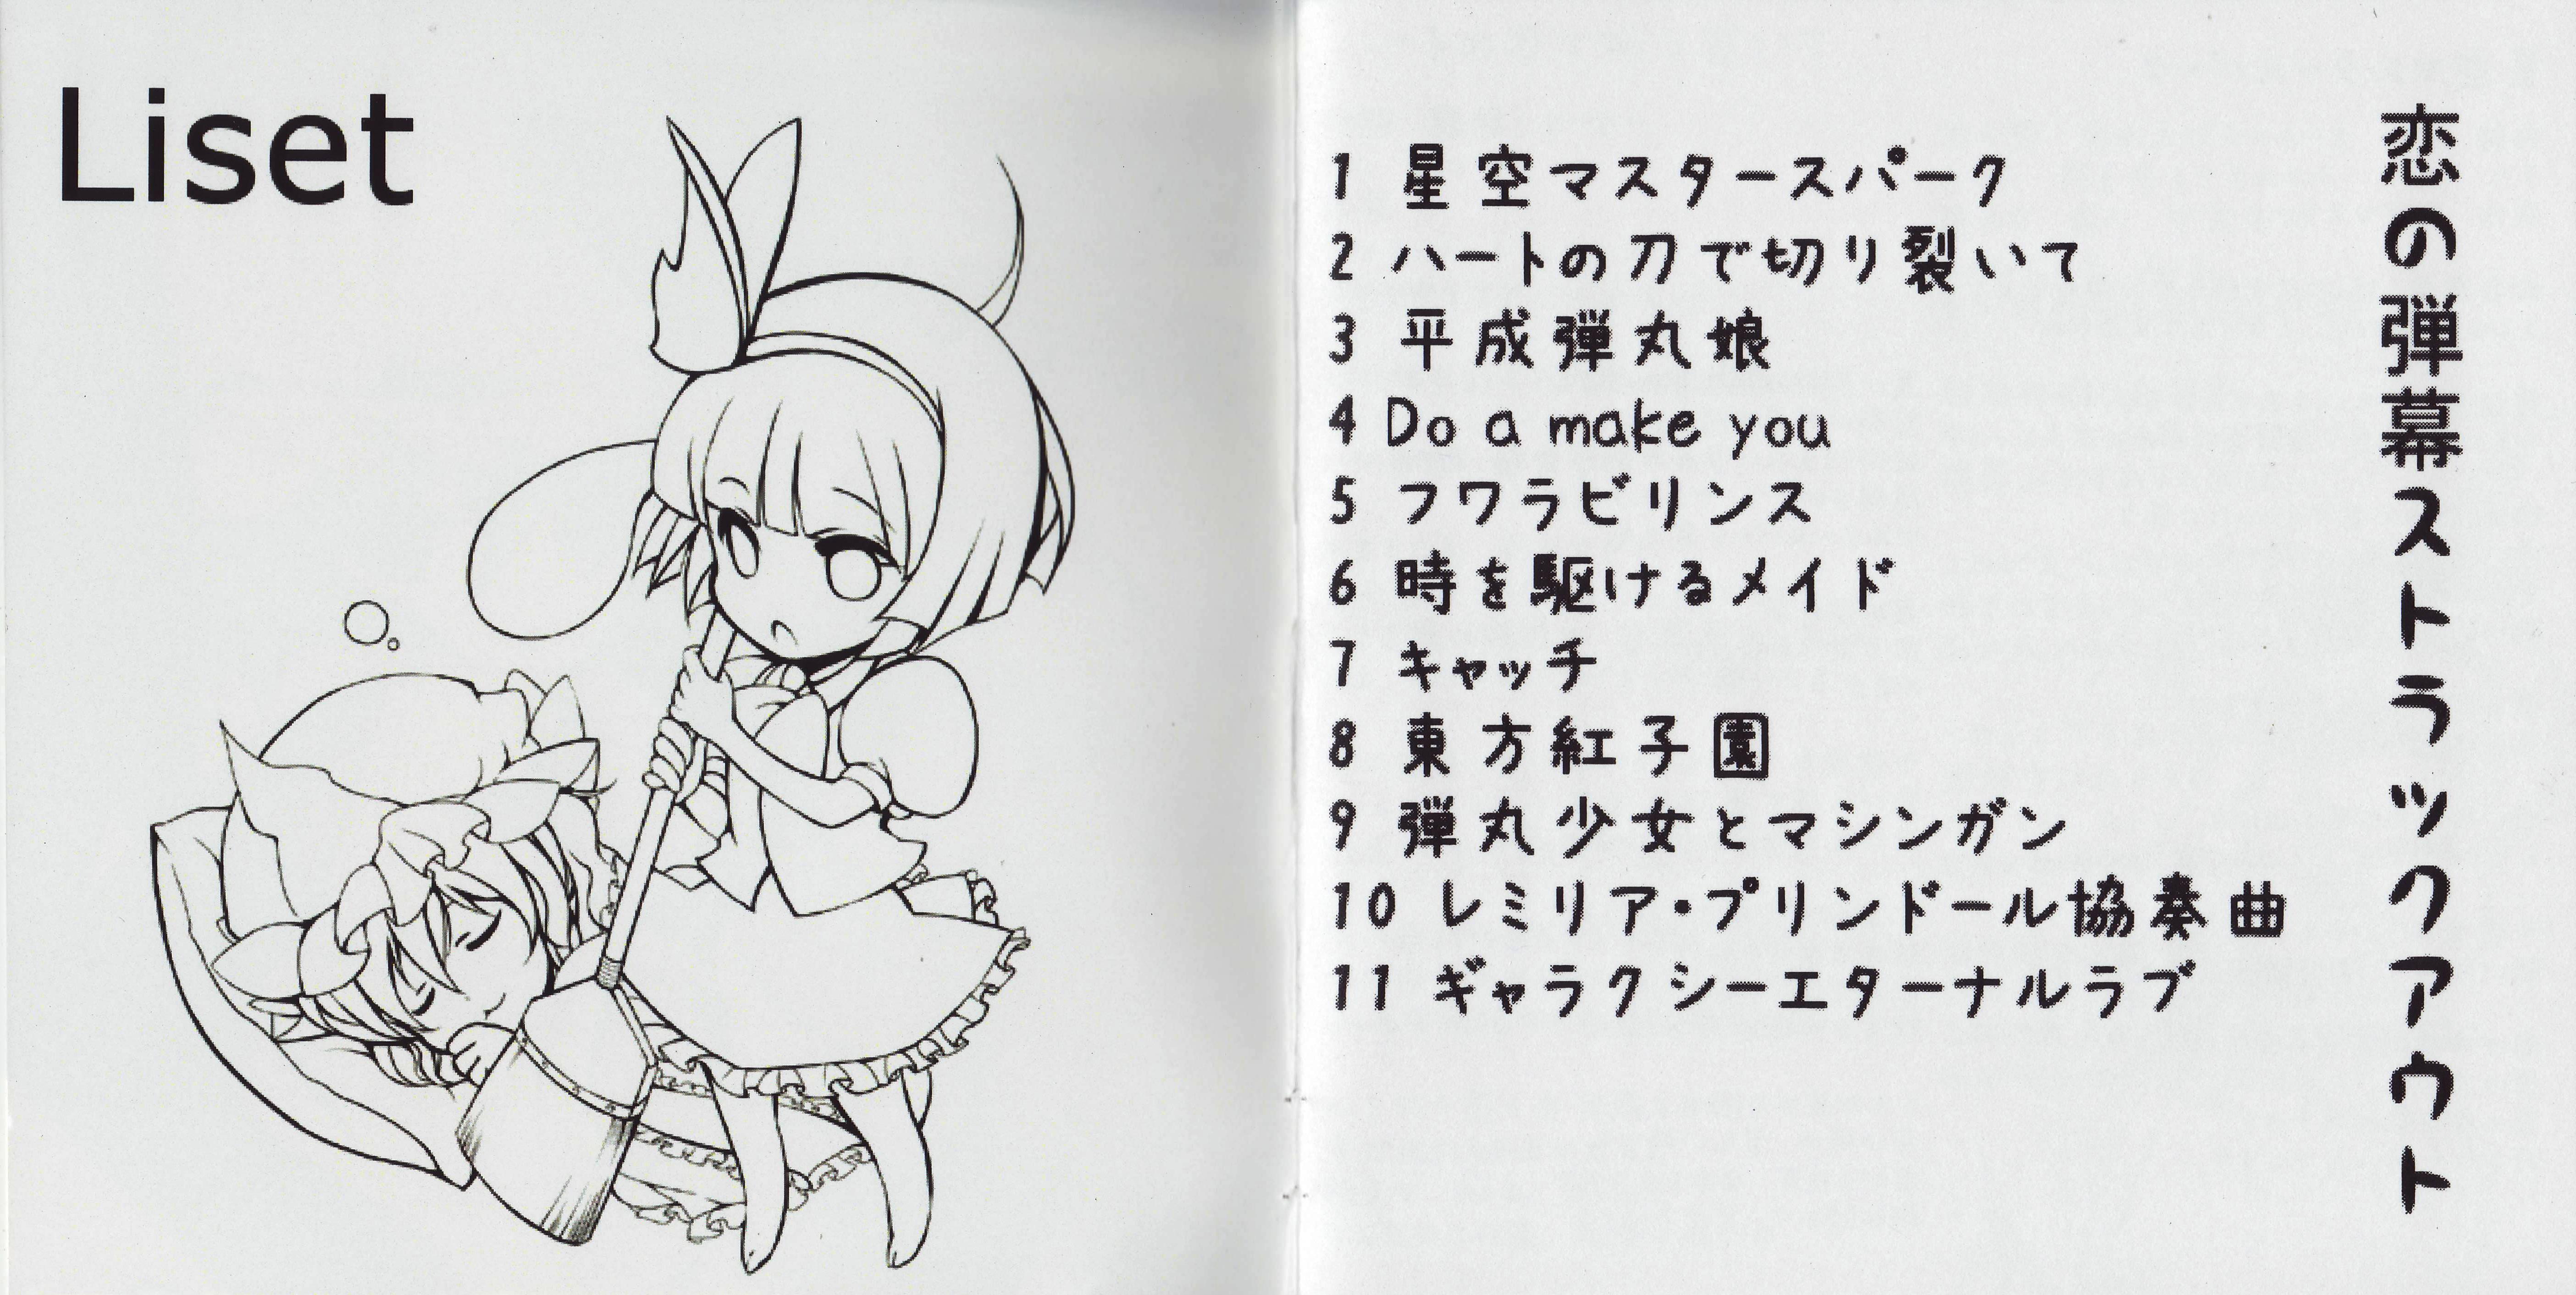 Liset
恋の弾幕ストラックアウト
1 星空マスタースパーク
2 ハートの刀で切り裂いて
3 平成弾丸娘
4 Do a make you
5 フワラビリンス
6 時を駆けるメイド
7 キャッチ
8 東方紅子園
9 弾丸少女とマシンガン
10 レミリア・プリンドール協奏曲
11 ギャラクシーエターナルラブ